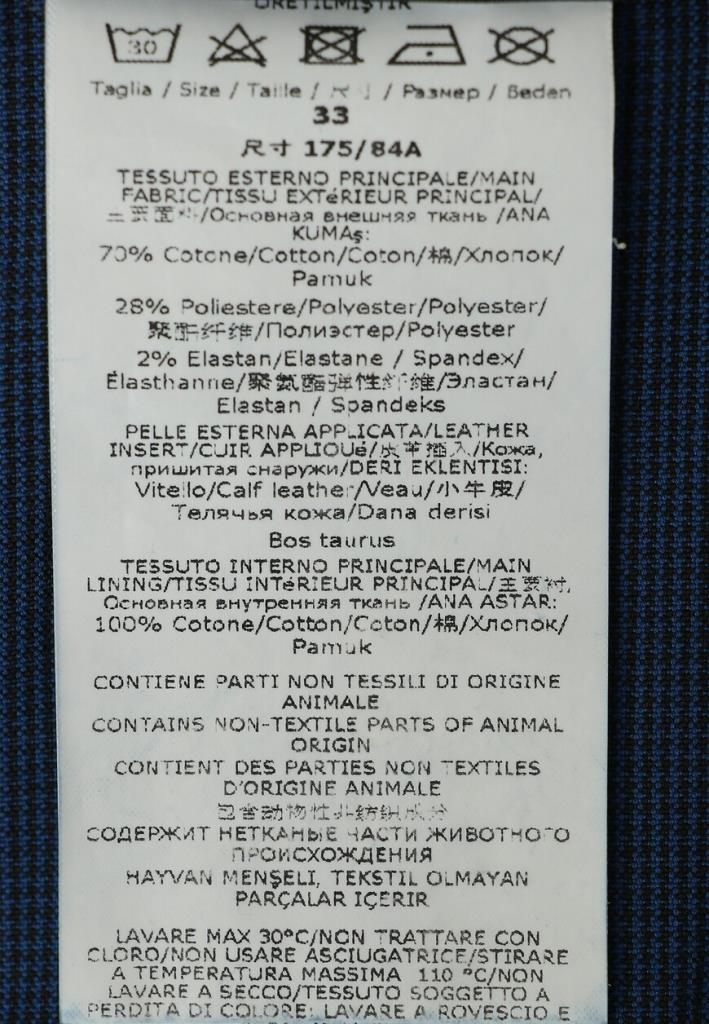 ÜRETİLMİŞTİR
30
Taglia / Size / Taille / 尺寸 / Размер / Beden
33
尺寸 175/84A
TESSUTO ESTERNO PRINCIPALE/MAIN
FABRIC/TISSU EXTéRIEUR PRINCIPAL/
主要面料/Основная внешняя ткань /ANA
KUMAş:
70% Cotone/Cotton/Coton/棉/Хлопок/
Pamuk
28% Poliestere/Polyester/Polyester/
聚酯纤维/Полиэстер/Polyester
2% Elastan/Elastane / Spandex/
Élasthanne/聚氨酯弹性纤维/Эластан/
Elastan / Spandeks
PELLE ESTERNA APPLICATA/LEATHER
INSERT/CUIR APPLIQUé/皮革插入/Кожа,
пришитая снаружи/DERI EKLENTISI:
Vitello/Calf leather/Veau/小牛皮/
Телячья кожа/Dana derisi
Bos taurus
TESSUTO INTERNO PRINCIPALE/MAIN
LINING/TISSU INTéRIEUR PRINCIPAL/主要衬,
Основная внутренняя ткань /ANA ASTAR:
100% Cotone/Cotton/Coton/棉/Хлопок/
Pamuk
CONTIENE PARTI NON TESSILI DI ORIGINE
ANIMALE
CONTAINS NON-TEXTILE PARTS OF ANIMAL
ORIGIN
CONTIENT DES PARTIES NON TEXTILES
D'ORIGINE ANIMALE
包含动物性非纺织成分
СОДЕРЖИТ НЕТКАНЫЕ ЧАСТИ ЖИВОТНОГО
ПРОИСХОЖДЕНИЯ
HAYVAN MENŞELI, TEKSTIL OLMAYAN
PARÇALAR IÇERIR
LAVARE MAX 30°C/NON TRATTARE CON
CLORO/NON USARE ASCIUGATRICE/STIRARE
A TEMPERATURA MASSIMA 110 °C/NON
LAVARE A SECCO/TESSUTO SOGGETTO A
PERDITA DI COLORE: LAVARE A ROVESCIO E